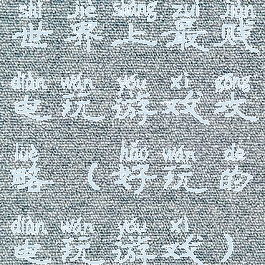 shì jiè shàng zuì jiàn
世界上最贱
diàn wán yóu xì gōng
电玩游戏攻
lüè hǎo wán de
略（好玩的
diàn wán yóu xì
电玩游戏）